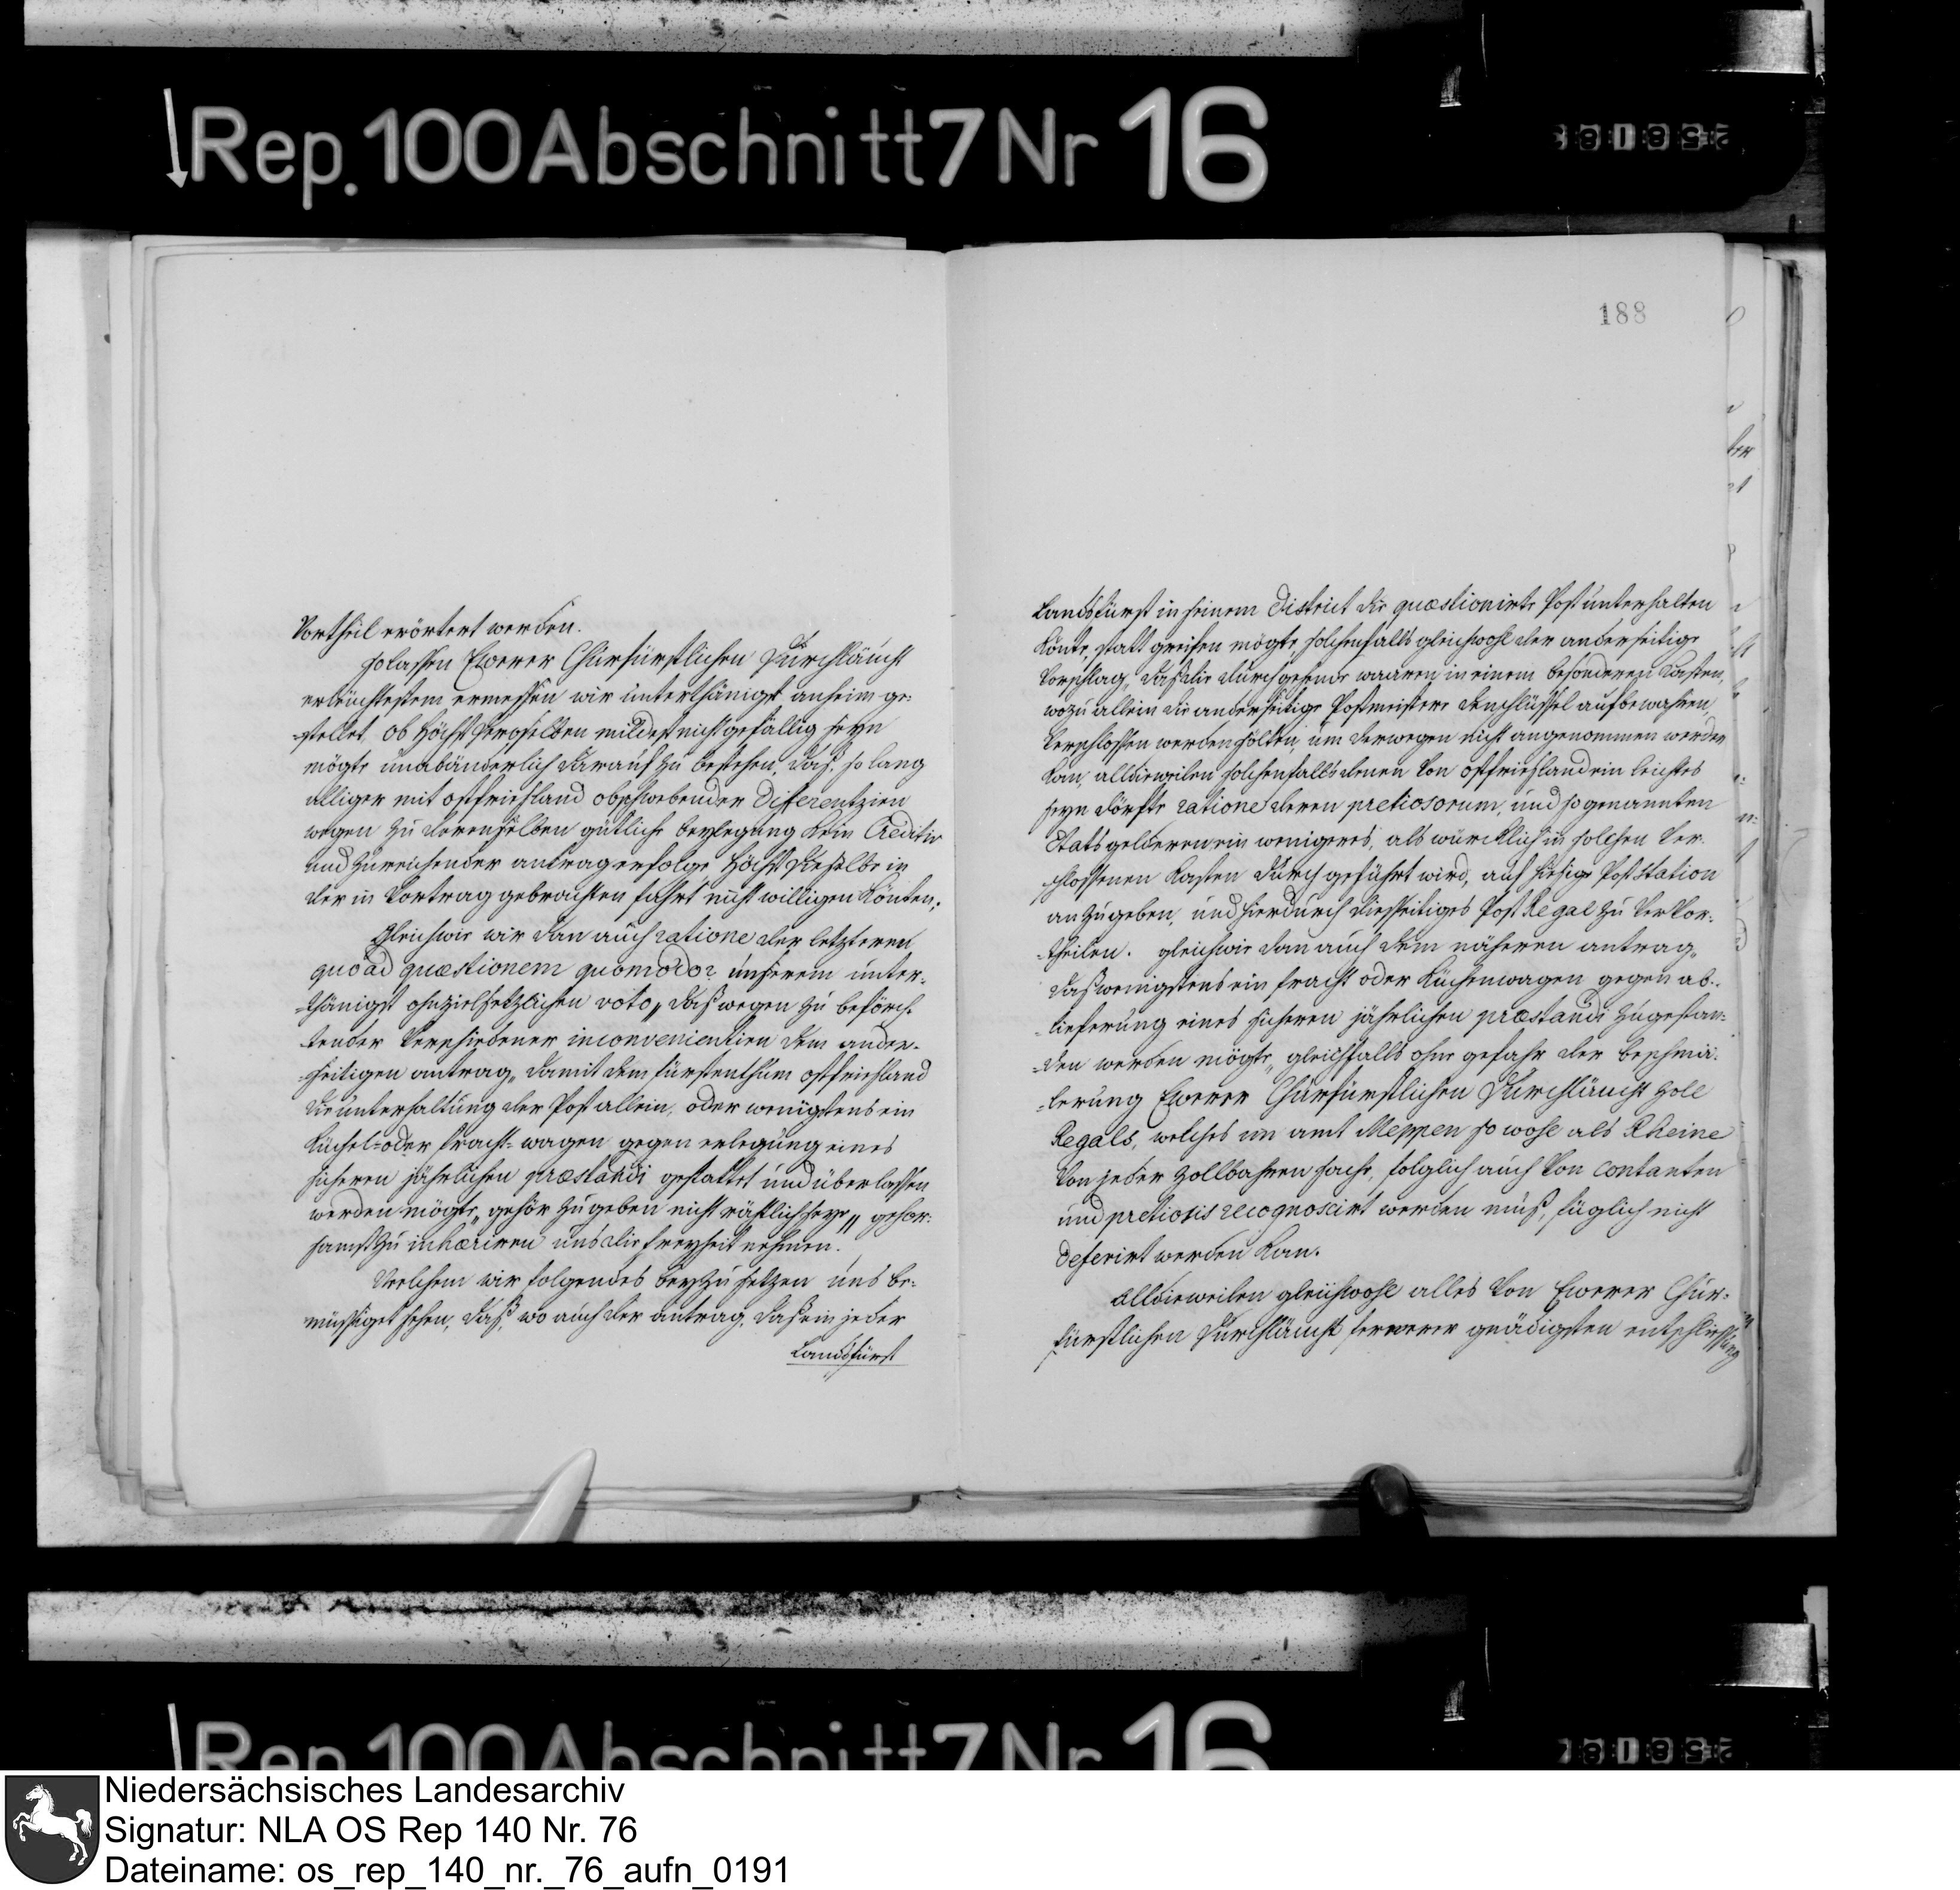 Rep. 100 Abschnitt 7 Nr 16
188
Vortheil erörtert werden.
so lassen Ewerer Churfürstlichen Durchläucht
erleüchtestem ermessen wir unterthänigst anheim ge-
-stellet ob höchst deroselben mildest nicht gefällig seyn
mögte unabänderlich darauf zu bestehen, daß, so lang
alliger mit ostfrießland obschwebender Differentzien
wegen zu derenselben gütliche beylegung kein Creditiv
und zureichender antrag erfolge, höchst dieselbe in
der in Vortrag gebrachten fahrt nicht willigen könten;
Gleichwie wir dan auch ratione der letzteren
quoad quæstionem quomodo? unserem unter-
-thänigst ohnzielsetzlichen voto„ daß wegen zu beförch-
-tender verschiedener inconvenientien dem ander-
-seitigen antrag„ damit dem fürstenthum ostfrießland
die unterhaltung der Post allein, oder wenigstens ein
Küchel- oder fracht-wagen gegen erlegung eines
sicheren jährlichen præstandi gestattet und überlassen
werden mögte„ gehör zu geben nicht räthlich seye„ gehor-
samst zu inhæriren uns die freyheit nehmen.
Welchem wir folgendes beyzusetzen uns be-
müssiget sehen, daß, wo auch der antrag, daß ein jeder
Landsfürst
Landsfürst in seinem District die quæstionirte Post unterhalten
könte, statt greifen mögte, solchenfalls gleichwohl der anderseitige
Vorschlag, daß die durchgehende waaren in einem besonderen Kasten,
wozu allein die anderseitige Postmeistere den schlüssel aufbewahren,
verschlossen werden sölten, um derwegen nicht angenommen werden
kan, alldieweilen solchenfalls denen von ostfrießland ein leichtes
seyn dörfte ratione deren pretiosorum, und so genannten
Stats gelderen ein wenigeres, als würcklich in solchen ver-
schlossenen Kasten durchgeführt wird, auf hiesige Post Station
anzugeben, und hierdurch diesseitiges Post Regal zu vervor-
-theilen. gleichwie dan auch dem näheren antrag„
daß wenigstens ein fracht oder Küchenwagen gegen ab-
-lieferung eines sicheren jährlichen præstandi zugestan-
-den werden mögte„ gleichfalls ohne gefahr der beschmä-
-lerung Ewerer Churfürstlichen Durchläucht Zoll
Regals, welches im amt Meppen so wohl als Rheine
von jeder Zollbahren sache, folglich auch von contanten
und pretiosis recognoscirt werden muß, füglich nicht
deferirt werden kan.
Alldieweilen gleichwohl alles von Ewerer Chur-
fürstlichen Durchläucht fernerer gnädigsten entschliessung
Rep. 100 Abschnitt 7 Nr 16
Niedersächsisches Landesarchiv
Signatur: NLA OS Rep 140 Nr. 76
Dateiname: os_rep_140_nr._76_aufn_0191